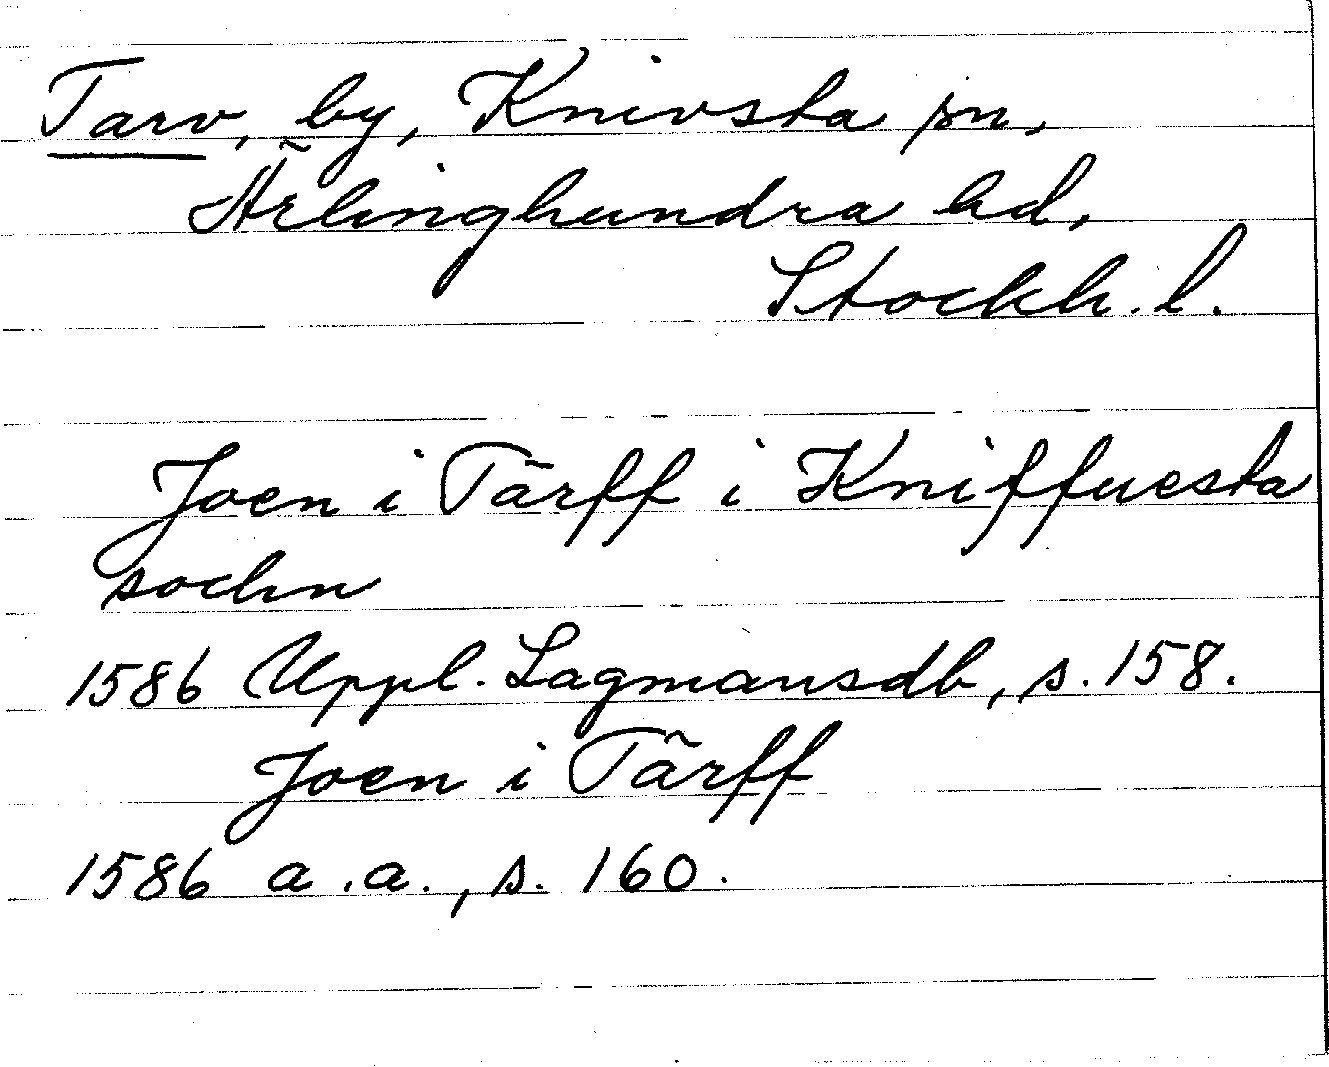 Tarv, by, Knivsta sn,
Ärlinghundra hd,
Stockh. l.
Joen i Tärff i Kniffuesta
sochn
1586 Uppl. Lagmansdb, s. 158.
Joen i Tärff
1586 a.a., s. 160.